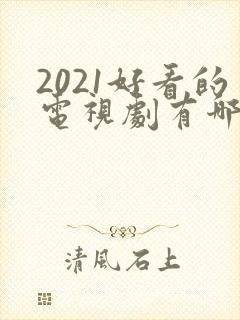 2021好看的
電視劇有哪
清風石上